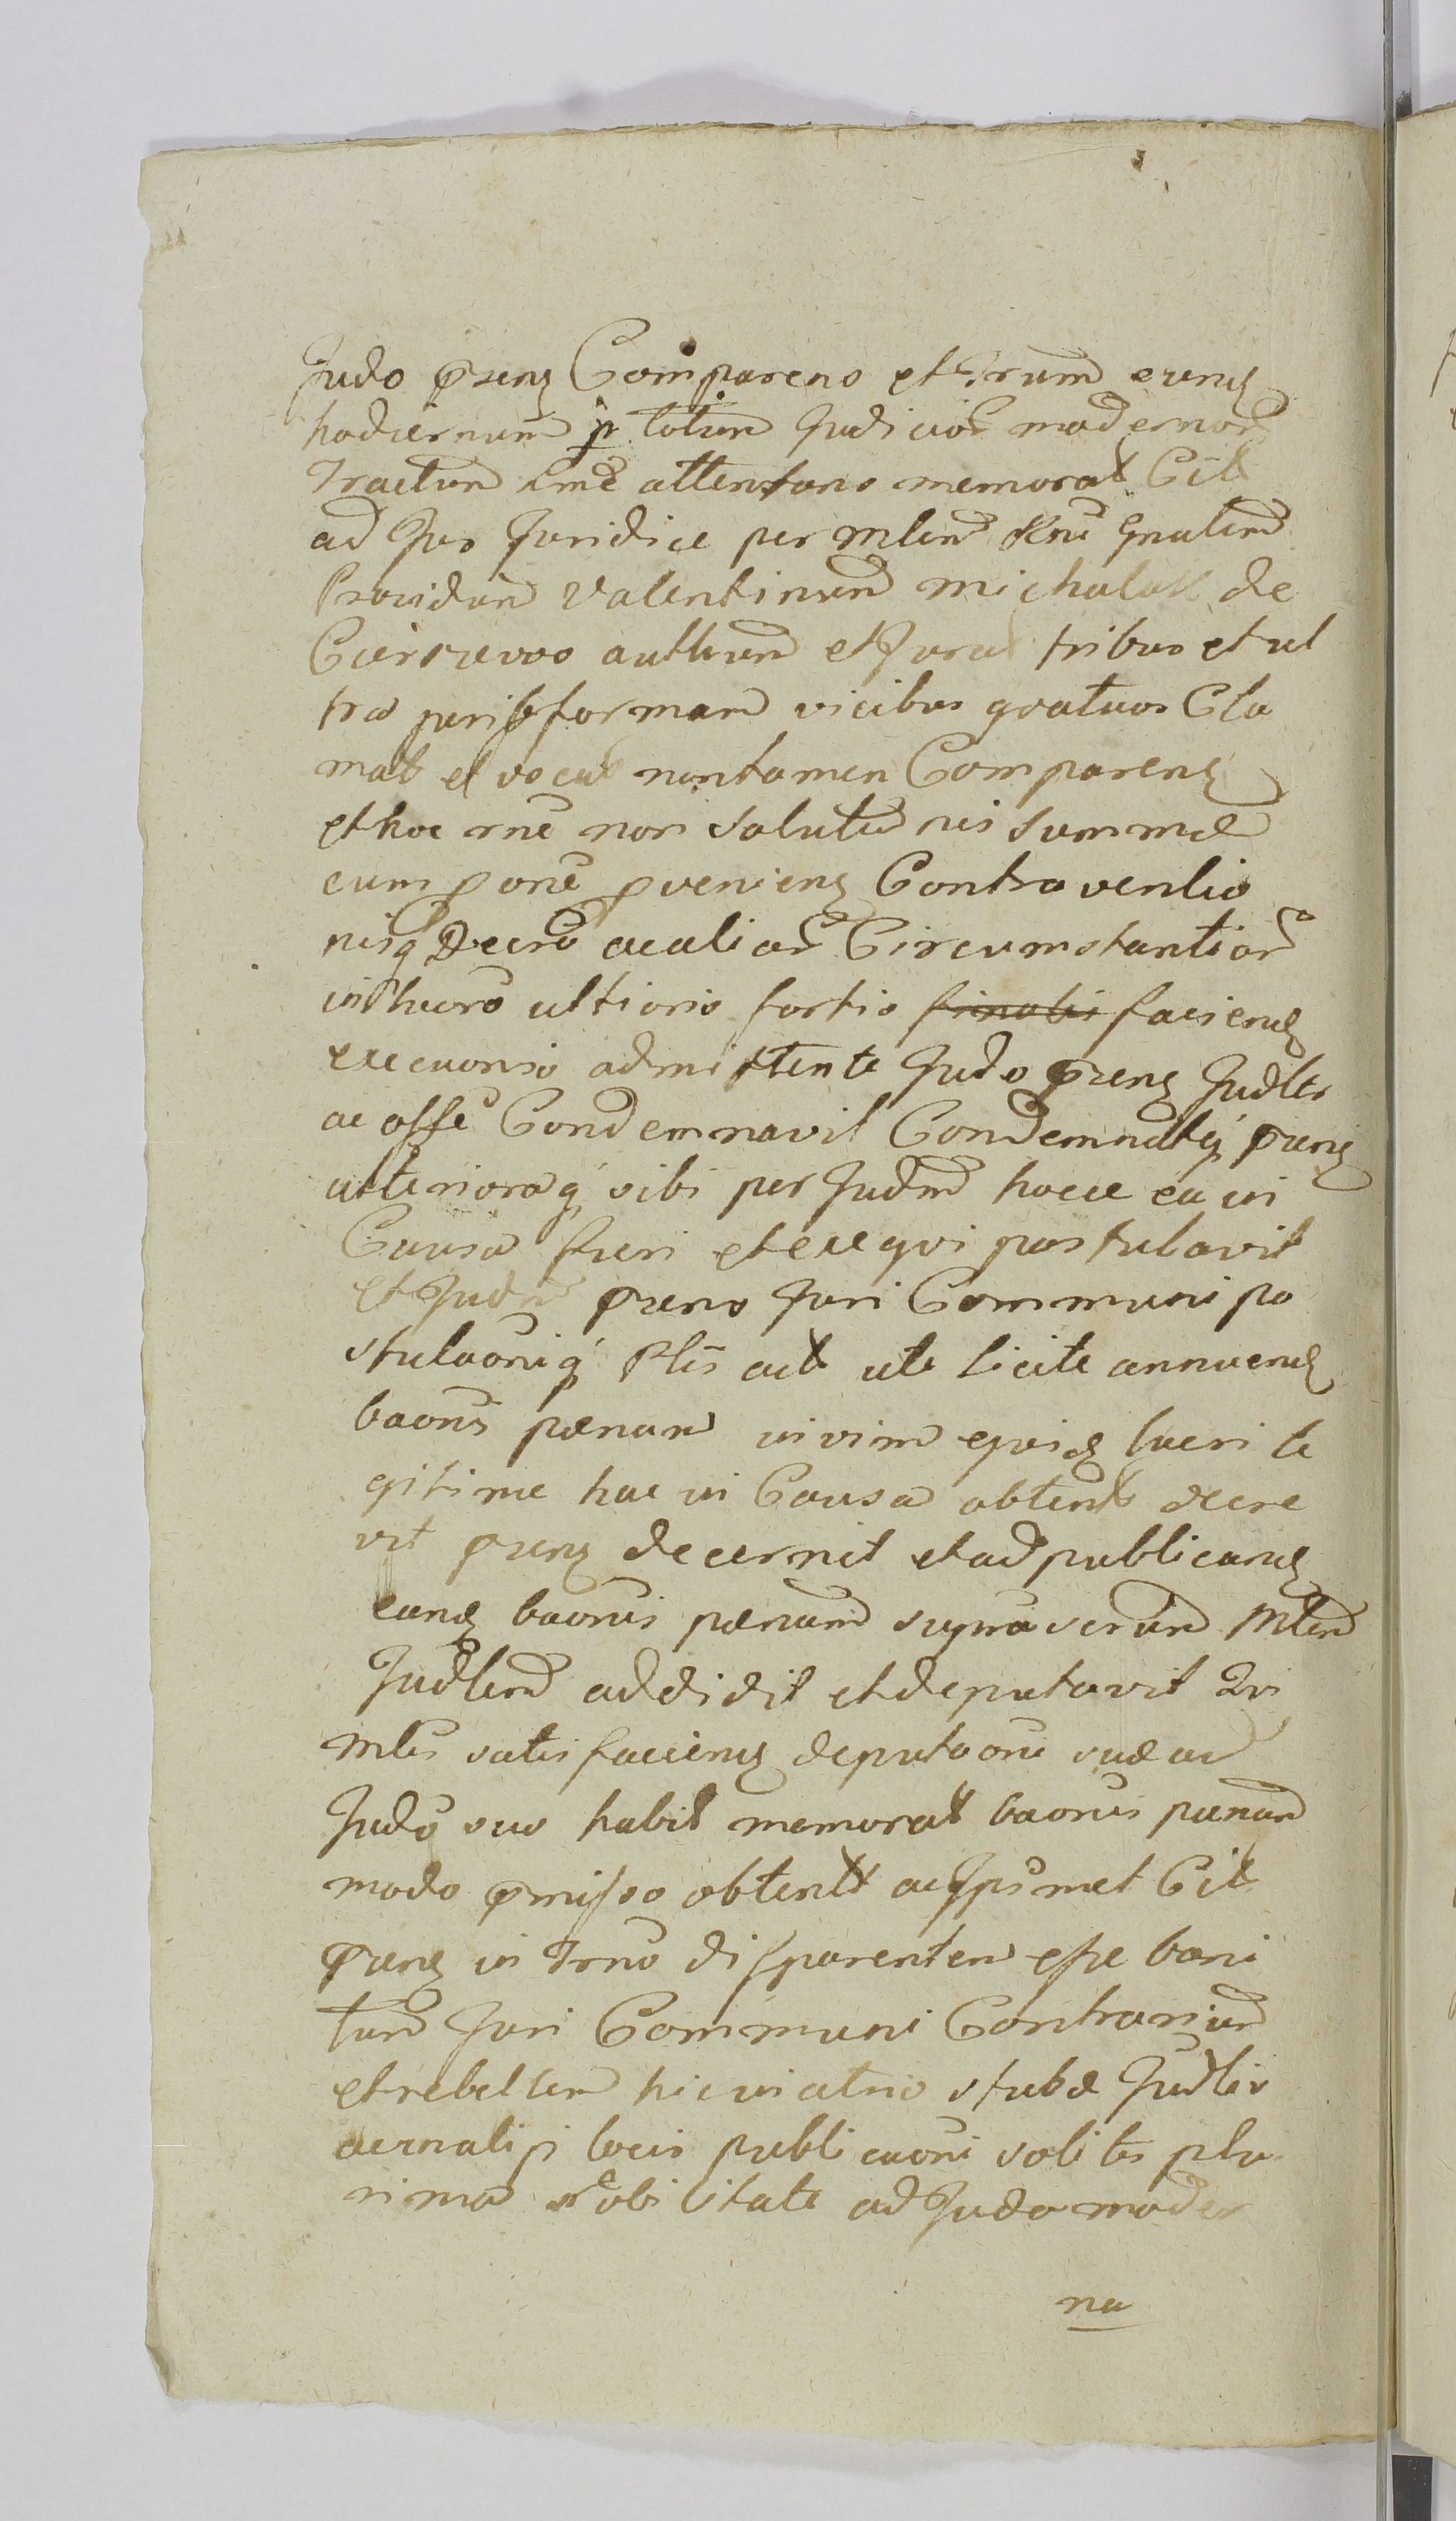 Judo prens Comparens et Trnum eund
hodiernum pr totum Judicior modernor
Tractum lime attentans memorat Citt
ad Jus Juridice per Mlem Rni Gnalem
Providum Valentinum Michalak de
authum et Jurat tribus et ul
tra juris formam vicibus quatuor Cla
mat et vocat non tamen Comparend
et hoc rne non solutae sui summae
cum pone proveniend Contraventio
nisq Decro acalior Circumstantior
inthuoro ultioris fortio finalis faciend
execuonis admittente Judo prens Judler
ac offe Condemnavit Condemnatq prens
ulterioraq sibi per Judm hocce ea in
Causa fieri et exequi postulavit
et Judm prens Juri Communi po
stulaoniq Ptis act ute licite annuend
baonis paenam in vim ejusd lucri le
gitime hac in Causa obtent decre
vit prens decernit et ad publicand
eand baonis paenam supra scrum Mlem
Judlem addidit et deputavit Qui
Mles satisfaciend deputaoni suae ac
Judo suo habit memorat baonis paenam
modo pmisso obtent ac Jpsmet Citt
prens in Trno disparentem esse bani
tum Juri Communi Contrarium
et rebellem hic in atrio stubae Judlis
acrnalis locis publicaoni solitis plu
rima Nobilitate ad Juda moder
na